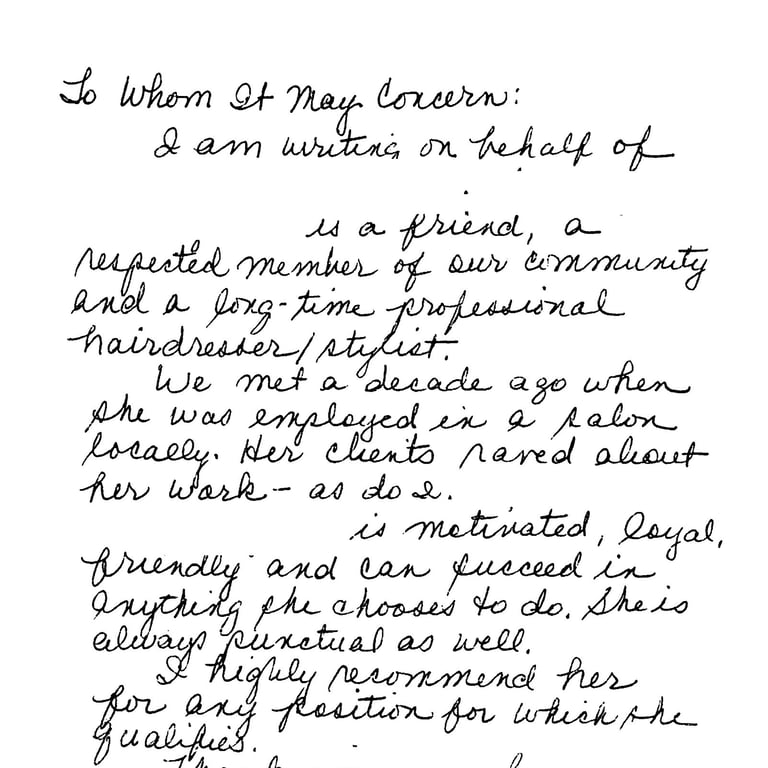 To Whom It May Concern:
I am writing on behalf of
is a friend, a
respected member of our community
and a long-time professional
hairdresser/stylist.
We met a decade ago when
she was employed in a salon
locally. Her clients raved about
her work - as do I.
is motivated, loyal,
friendly and can succeed in
anything she chooses to do. She is
always punctual as well.
I highly recommend her
for any position for which she
qualifies.